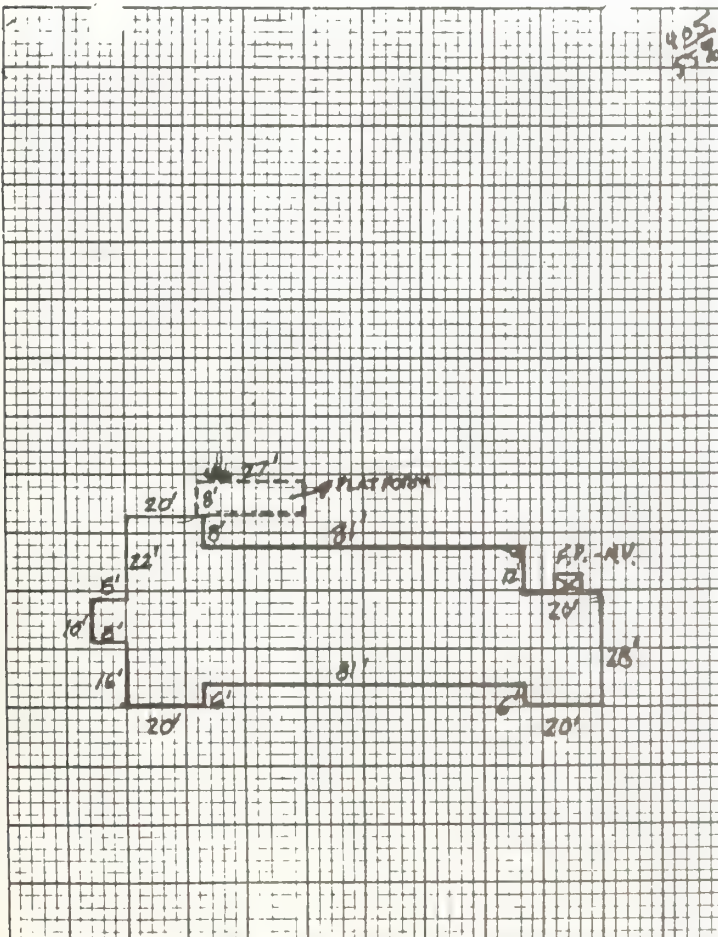 405
27'
PLATFORM
20'
8'
8'
81'
22'
12'
F.P.-N.V.
20'
8'
10'
8'
28'
16'
81'
6'
6'
20'
20'